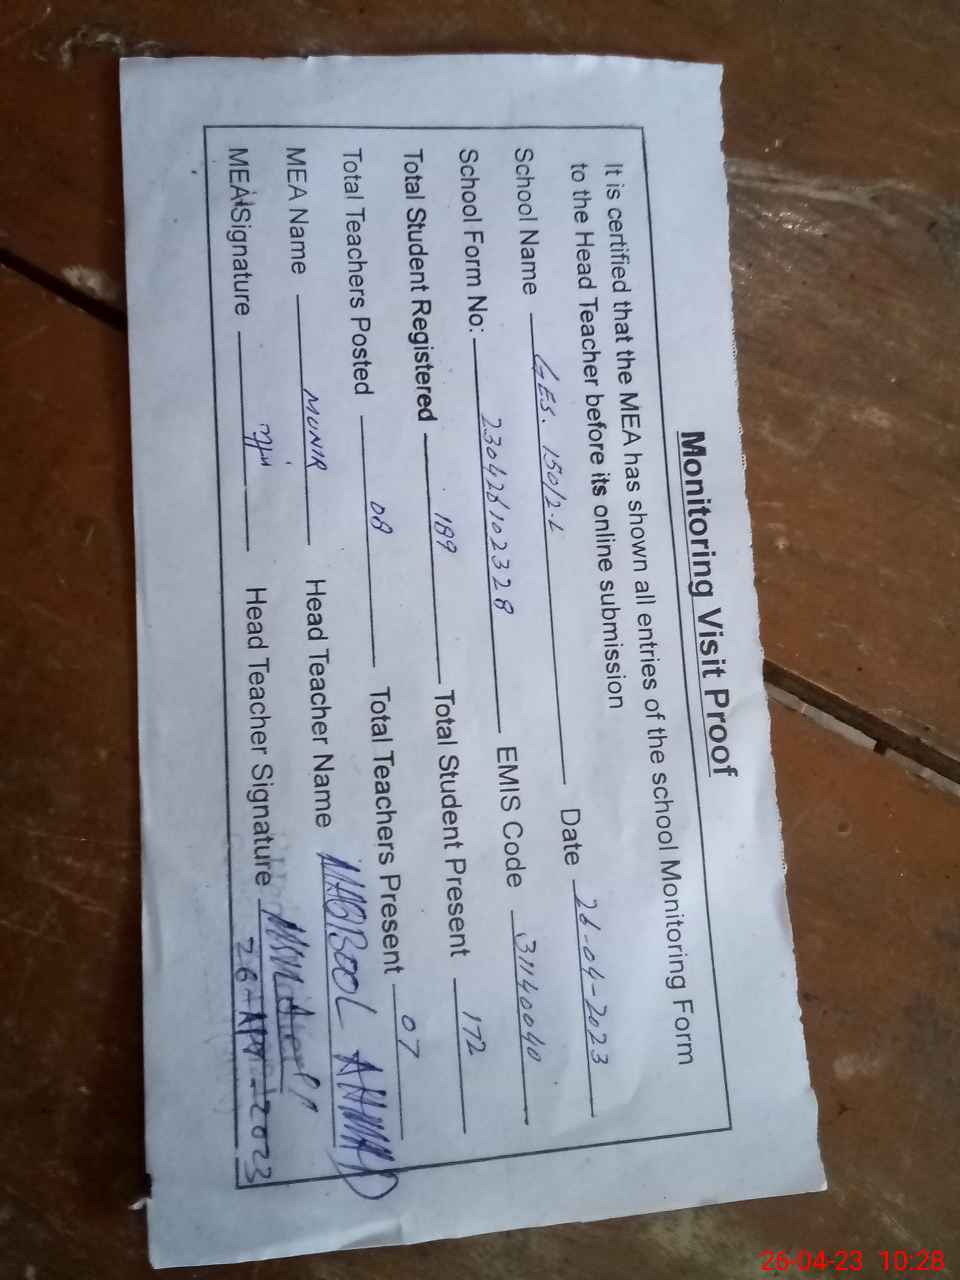 Monitoring Visit Proof
It is certified that the MEA has shown all entries of the school Monitoring Form
to the Head Teacher before its online submission
School Name GES. 150/2-L Date 26-04-2023
School Form No: 230426102328 EMIS Code 31140040
Total Student Registered 189 Total Student Present 172
Total Teachers Posted 08 Total Teachers Present 07
MEA Name MUNIR Head Teacher Name MAQBOOL AHMAD
MEA Signature Head Teacher Signature
26-APR-2023
26-04-23 10:28